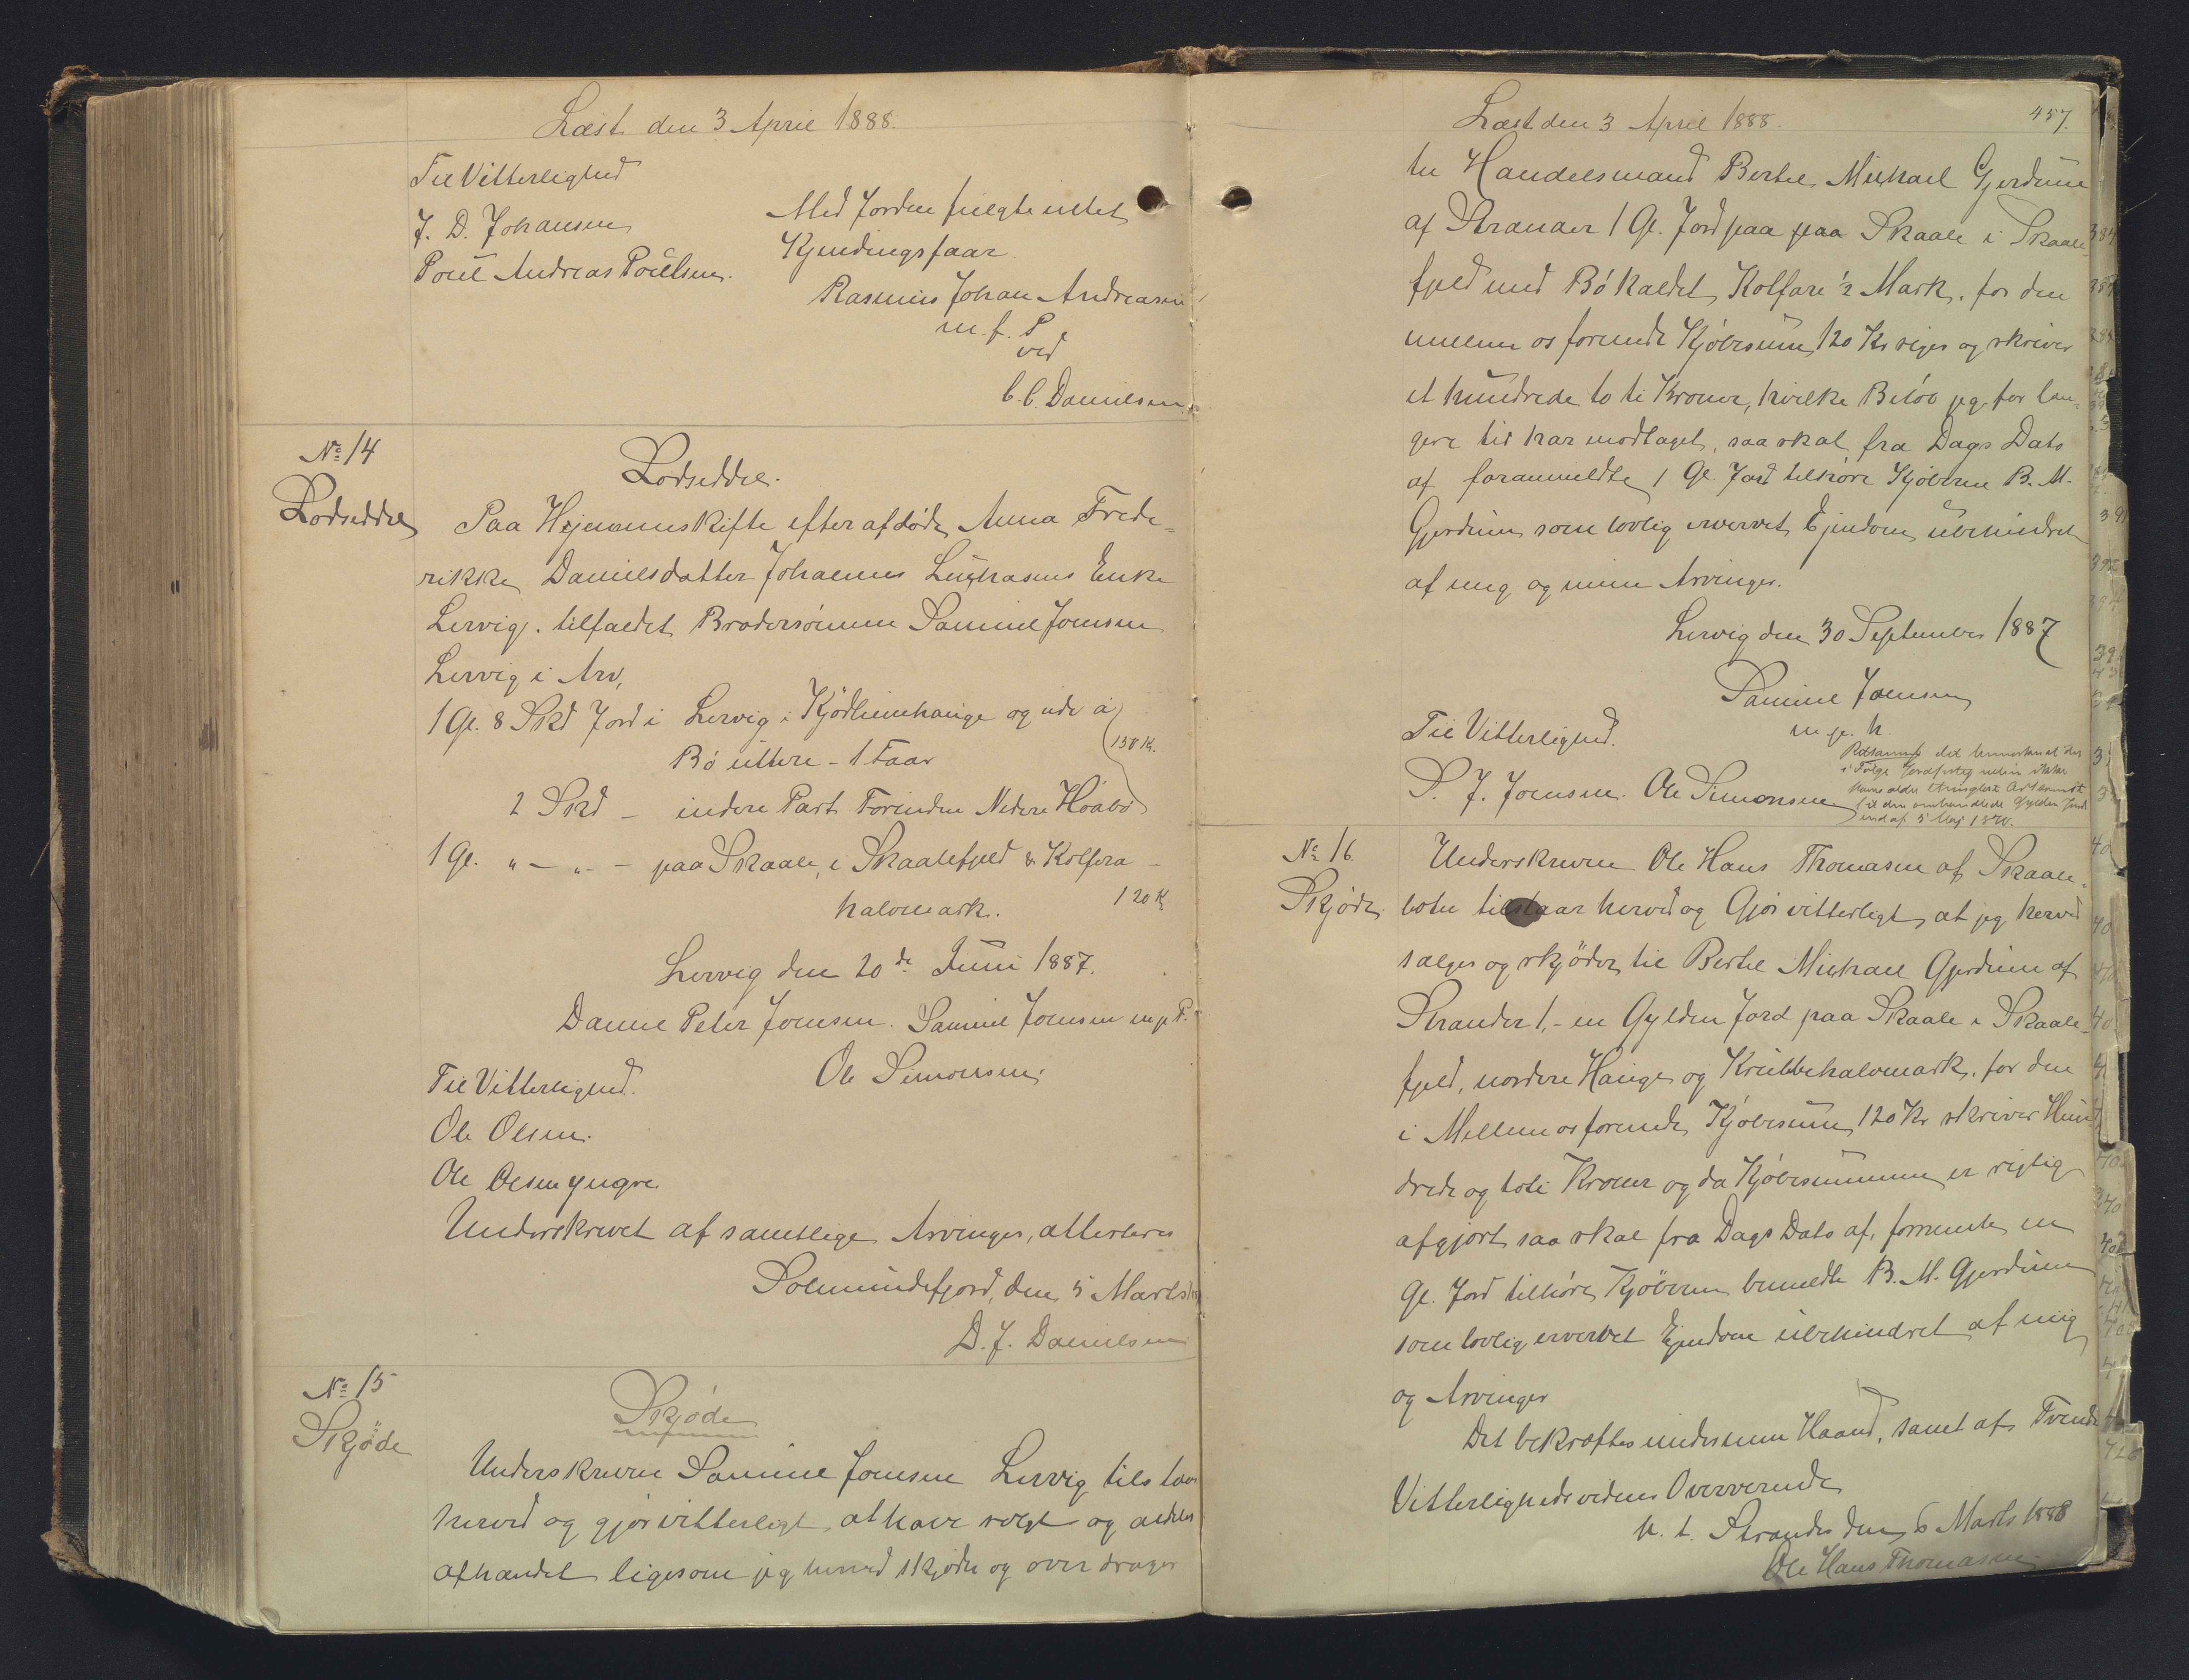 Læst den 3 April 1888.
Til Vitterlighed
J. D. Johansen
Poul Andreas Poulsen.
Med Jorden fulgte intet
Kjendingsfaar
Rasmus Johan Andreasen
m. f. P.
ved
C. C. Danielsen
No 14
Lodseddel
Lodseddel.
Paa Hjemmeskifte efter afdøde Anna Frede-
rikke Danielsdatter Johannes Enke
Lervig. tilfaldet Brodersønnen Samuel Joensen
Lervig i Arv,
1 Gl. 8 Skd Jord i Lervig i Kjødleimhauge og ude á
Bø uttere - 1 Faar
150 K.
2 Skd - indere Part Forinden Nedere Høabø
1 Gl. " - " - paa Skaale, i Skaalefjeld & Kolfera -
halvmark. 120 K
Lervig den 20de Juni 1887.
Daniel Peter Joensen. Samuel Joensen m. p. P.
Ole Simonsen.
Til Vitterlighed.
Ole Olsen.
Ole Olsen yngre
Underskrevet af samtlige Arvinger, atterteres
Solmundefjord, den 5 Marts
D. J. Danielsen
No 15
Skjøde
Skjøde
Underskrevne Samuel Joensen Lervig tilstaar
herved og gjør vitterligt at have solgt og aldeles
afhændet ligesom jeg herved skjøder og overdrager
Læst den 3 April 1888.
457.
til Handelsmand Bertel Michael Gjerdum
af Strander 1 Gl. Jord paa paa Skaale i Skaale-
fjeld med Bø kaldet Kolfare ½ Mark, for den
mellem os forende Kjøbesum 120 Kr siger og skriver
et hundrede to ti Kroner, hvilke Beløb jeg for læn-
gere tid har modtaget, saa skal fra Dags Dato
af foranmeldte 1 Gl. Jord tilhøre Kjøberne B. M.
Gjerdum som lovlig erværvet Ejendom ubehindret
af mig og mine Arvinger.
Lervig den 30 September 1887
Samuel Joensen
m. p. h.
Til Vitterlighed.
S. J. Joensen. Ole Simonsen
Retsanm det bemærkes at der
i Følge
til den omhandlede Gylden Jord
ind af 5 Maj 1870.
No 16.
Skjøde
Underskrevne Ole Hans Thomasen af Skaale-
boten tilstaar herved og Gjør vitterligt, at jeg herved
sælger og skjøder til Bertel Michael Gjerdum af
Strander 1,- en Gylden Jord paa Skaale i Skaale-
fjeld, nordere Hauge og Krubbehalvmark, for den
i Mellem os forende Kjøbesum 120 Kr skriver Hun-
drede og toti Kroner og da Kjøbesummen er rigtig
afgjort saa skal fra Dags Dato af, fornævnte en
Gl. Jord tilhøre Kjøberen bemeldte B. M. Gjerdum
som lovlig erværvet Ejendom ubehindret af mig
og Arvinger
Det bekræftes under min Haand, samt af Tvende
Vitterlighedsvidners Overværende
p. t. Strander den 6 Marts 1888
Ole Hans Thomasen.